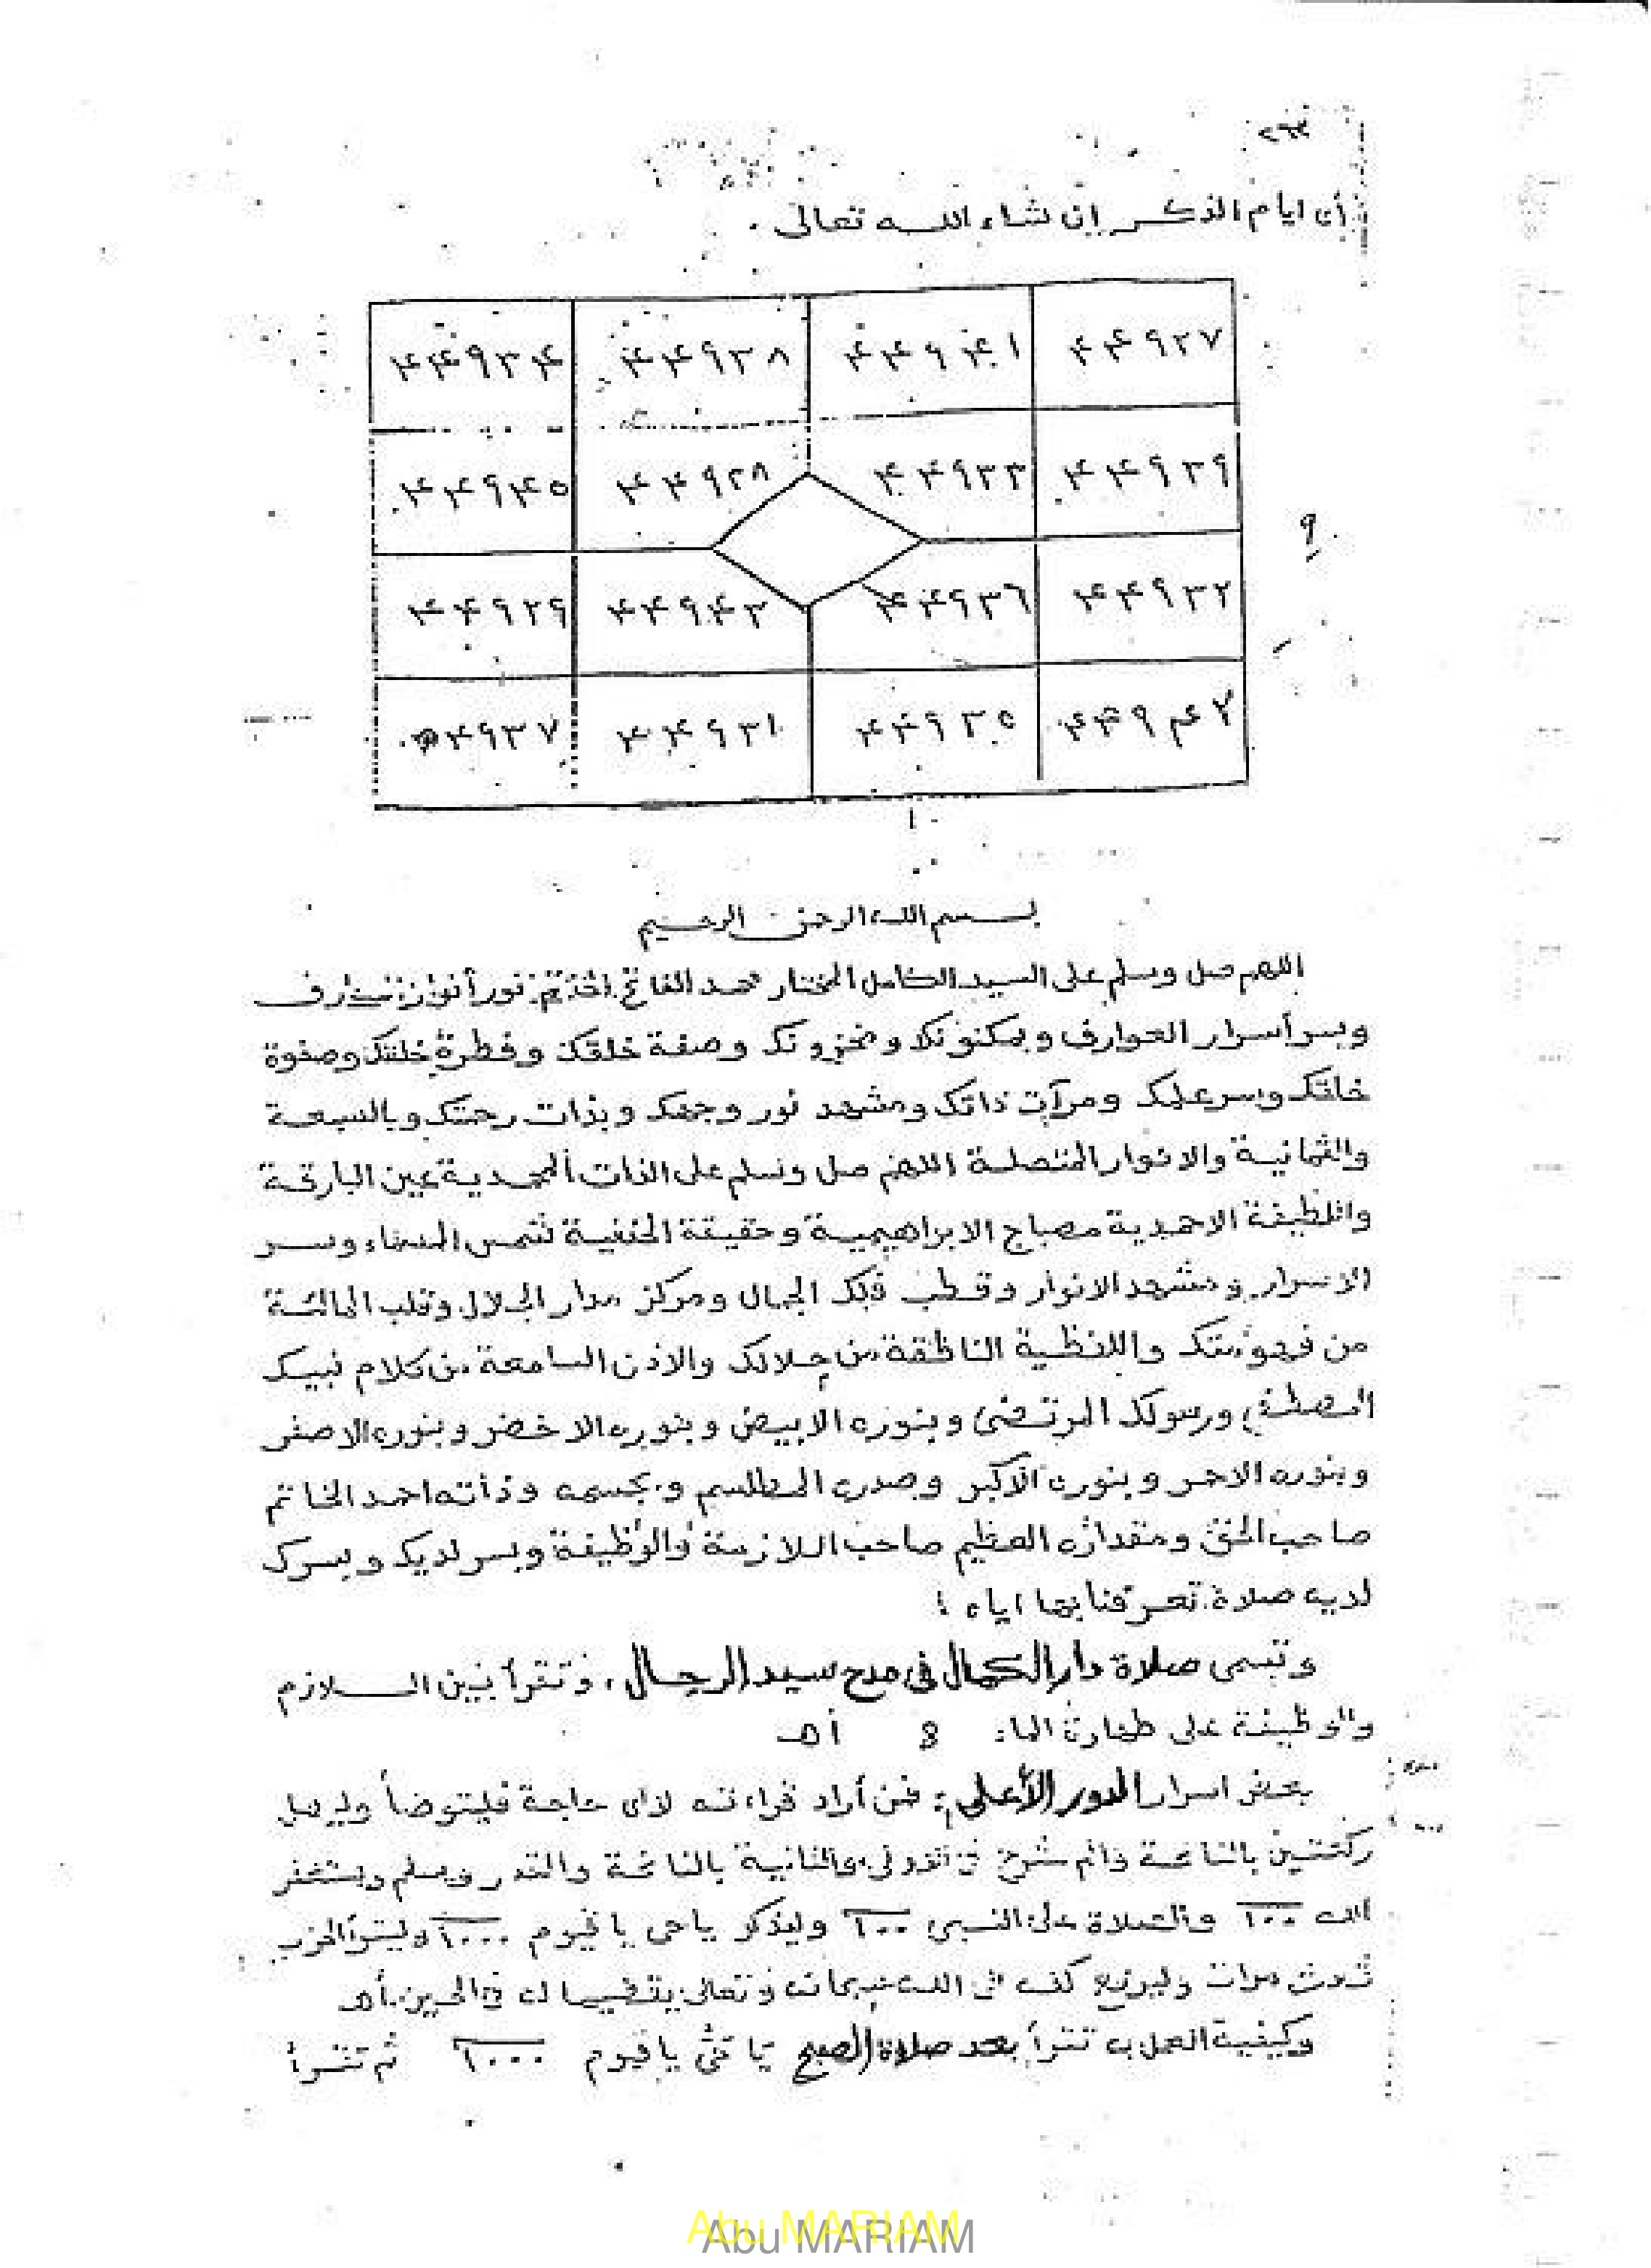 ٢٦٣
أن ايام الذكر إن شاء الله تعالى .
٤٤٩٣٤ ٤٤٩٣٨ ٤٤٩٤١ ٤٤٩٢٧
٤٤٩٤٥ ٤٤٩٢٨ ٤٤٩٣٣ ٤٤٩٣٩
٤٤٩٢٩ ٤٤٩٤٣ ٤٤٩٣٦ ٤٤٩٣٢
٤٩٣٧ ٤٤٩٣١ ٤٤٩٣٥ ٤٤٩٤٢
بسم الله الرحمن الرحيم
اللهم صل وسلم على السيد الكامل المختار محمد الفاتح نور أنوار
وبسر أسرار العوارف وبمكنونك ومخزونك وصفة خلقك وفطرة خلقتك وصفوة
خلقك وبسر علمك ومرآت ذاتك ومشهد نور وجهك وبذات رحمتك وبالسبعة
والثمانية والانوار المتصلة اللهم صل وسلم على الذات المحمدية عين البارقة
واللطيفة الاحمدية مصباح الابراهيمية وحقيقة الحنفية شمس السماء وسر
الاسرار ومشهد الانوار وقطب فلك الجمال ومركز مدار الجلال وقلب
من واللفظية الناطقة من جلالك والاذن السامعة من كلام نبيك
المصطفى ورسولك المرتضى وبنوره الابيض وبنوره الاخضر وبنوره الاصفر
وبنوره الاحمر وبنوره الاكبر وصدره المطلسم وبجسمه وذاته احمد الخاتم
صاحب الحق ومقداره العظيم صاحب اللازمة والوظيفة وبسر لديك وبسرك
لديه صلاة تعرفنا بها اياه ؛
وتسمى صلاة دار الكمال في مدح سيد الرجال ، وتقرأ بين اللازم
والوظيفة على طهارة الماء أهـ
بعض اسرار الدور الأعلى ؛ فمن أراد قراءته لأي حاجة فليتوضأ وليصل
ركعتين بالفاتحة والم نشرح في الاولى والثانية بالفاتحة والقدر ويسلم ويستغفر
الله ١٠٠ والصلاة على النبي ١٠٠ وليذكر يا حي يا قيوم ١٠٠٠ وليقرأ الحزب
ثلاث مرات وليرفع الله سبحانه وتعالى يقضيها له في الحين. أهـ
وكيفية العمل به تقرأ بعد صلاة الصبح يا حي يا قيوم ١٠٠٠ ثم تقرأ
Abu MARIAM